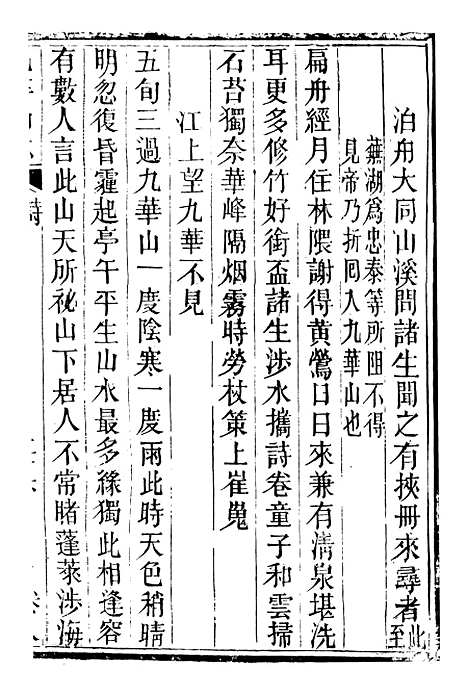 泊舟大同山溪間諸生聞之有挾冊來尋者此至
蕪湖爲忠泰等所阻不得
見帝乃折囘入九華山也
扁舟經月住林隈謝得黄鶯日日來兼有清泉堪洗
耳更多修竹好銜盃諸生涉水攜詩卷童子和雲掃
石苔獨奈華峰隔烟霧時勞杖策上崔嵬
江上望九華不見
五旬三過九華山一度陰寒一度雨此時天色稍晴
明忽復昏霾起亭午平生山水最多緣獨此相逢容
有數人言此山天所祕山下居人不常睹蓬萊涉海
詩